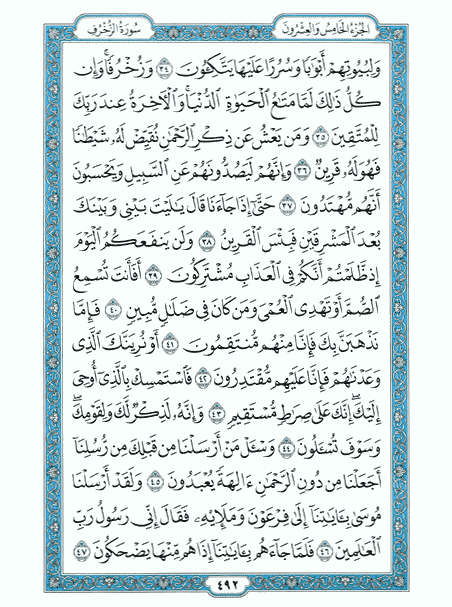 الجزء الخامس والعشرون
سورة الزخرف
وَلِبُيُوتِهِمْ أَبْوَٰبًا وَسُرُرًا عَلَيْهَا يَتَّكِـُٔونَ ٣٤ وَزُخْرُفًا ۚ وَإِن
كُلُّ ذَٰلِكَ لَمَّا مَتَـٰعُ ٱلْحَيَوٰةِ ٱلدُّنْيَا ۚ وَٱلْـَٔاخِرَةُ عِندَ رَبِّكَ
لِلْمُتَّقِينَ ٣٥ وَمَن يَعْشُ عَن ذِكْرِ ٱلرَّحْمَـٰنِ نُقَيِّضْ لَهُۥ شَيْطَـٰنًا
فَهُوَ لَهُۥ قَرِينٌ ٣٦ وَإِنَّهُمْ لَيَصُدُّونَهُمْ عَنِ ٱلسَّبِيلِ وَيَحْسَبُونَ
أَنَّهُم مُّهْتَدُونَ ٣٧ حَتَّىٰٓ إِذَا جَآءَنَا قَالَ يَـٰلَيْتَ بَيْنِى وَبَيْنَكَ
بُعْدَ ٱلْمَشْرِقَيْنِ فَبِئْسَ ٱلْقَرِينُ ٣٨ وَلَن يَنفَعَكُمُ ٱلْيَوْمَ
إِذ ظَّلَمْتُمْ أَنَّكُمْ فِى ٱلْعَذَابِ مُشْتَرِكُونَ ٣٩ أَفَأَنتَ تُسْمِعُ
ٱلصُّمَّ أَوْ تَهْدِى ٱلْعُمْىَ وَمَن كَانَ فِى ضَلَـٰلٍ مُّبِينٍ ٤٠ فَإِمَّا
نَذْهَبَنَّ بِكَ فَإِنَّا مِنْهُم مُّنتَقِمُونَ ٤١ أَوْ نُرِيَنَّكَ ٱلَّذِى
وَعَدْنَـٰهُمْ فَإِنَّا عَلَيْهِم مُّقْتَدِرُونَ ٤٢ فَٱسْتَمْسِكْ بِٱلَّذِىٓ أُوحِىَ
إِلَيْكَ ۖ إِنَّكَ عَلَىٰ صِرَٰطٍ مُّسْتَقِيمٍ ٤٣ وَإِنَّهُۥ لَذِكْرٌ لَّكَ وَلِقَوْمِكَ ۖ
وَسَوْفَ تُسْـَٔلُونَ ٤٤ وَسْـَٔلْ مَنْ أَرْسَلْنَا مِن قَبْلِكَ مِن رُّسُلِنَآ
أَجَعَلْنَا مِن دُونِ ٱلرَّحْمَـٰنِ ءَالِهَةً يُعْبَدُونَ ٤٥ وَلَقَدْ أَرْسَلْنَا
مُوسَىٰ بِـَٔايَـٰتِنَآ إِلَىٰ فِرْعَوْنَ وَمَلَإِي۟هِۦ فَقَالَ إِنِّى رَسُولُ رَبِّ
ٱلْعَـٰلَمِينَ ٤٦ فَلَمَّا جَآءَهُم بِـَٔايَـٰتِنَآ إِذَا هُم مِّنْهَا يَضْحَكُونَ ٤٧
٤٩٢